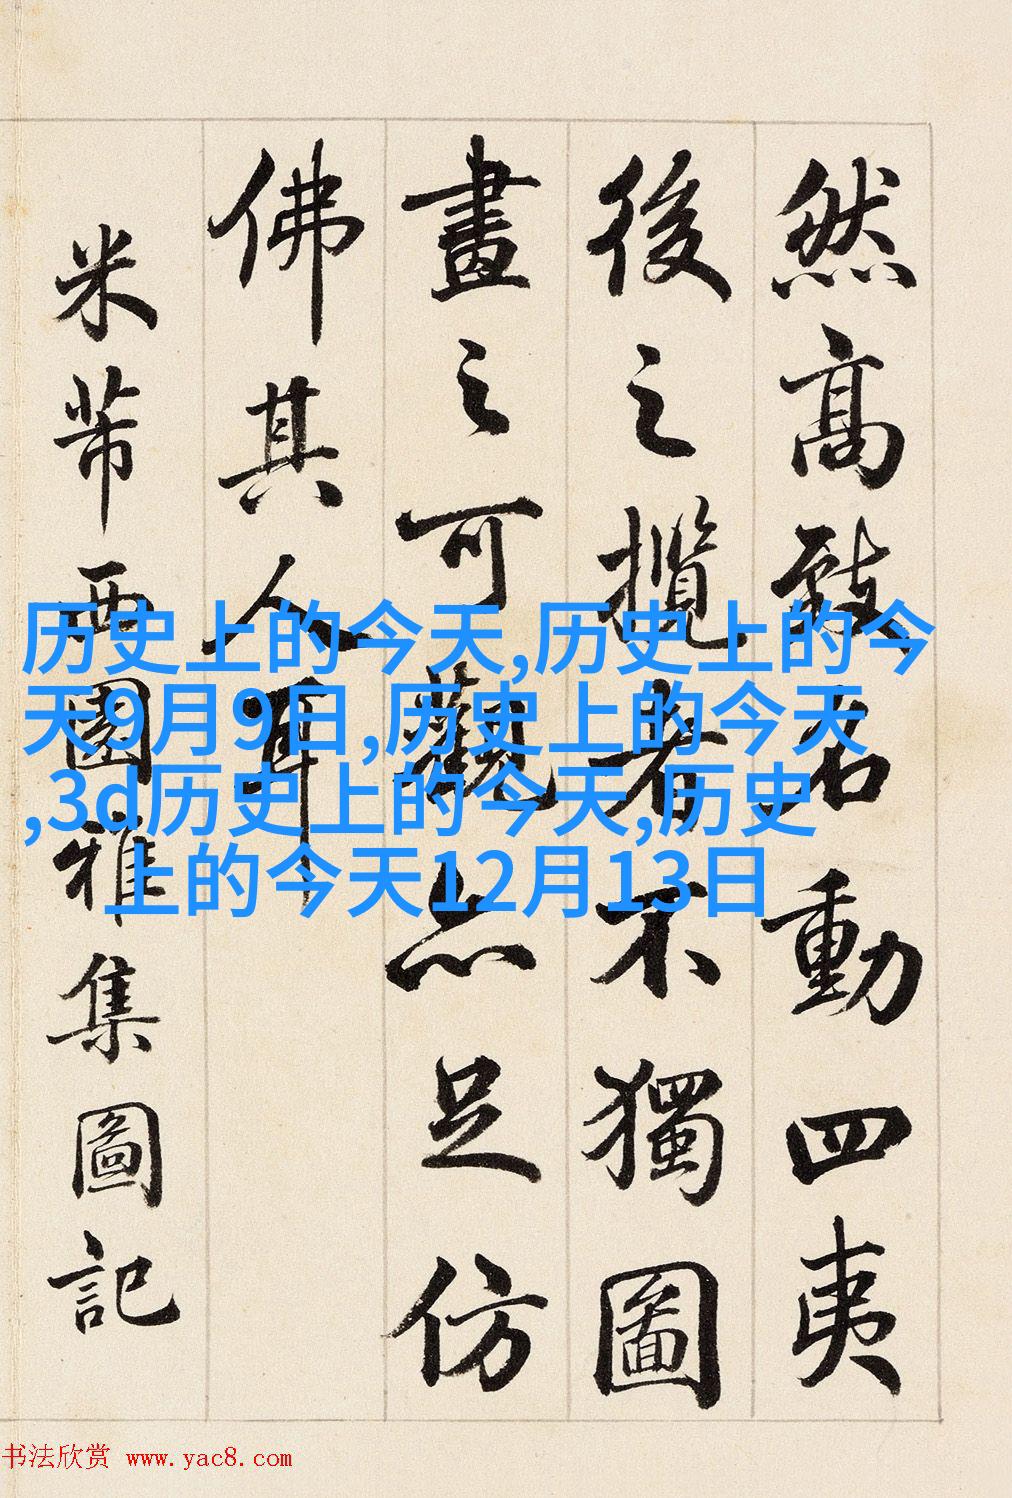 然高致名動四夷
後之攬者不獨圖
畫之可觀亦足仿
佛其人耳
米芾西園雅集圖記
历史上的今天,历史上的今
天9月9日,历史上的今天
,3d历史上的今天,历史
上的今天12月13日
书法欣赏 www.yac8.com